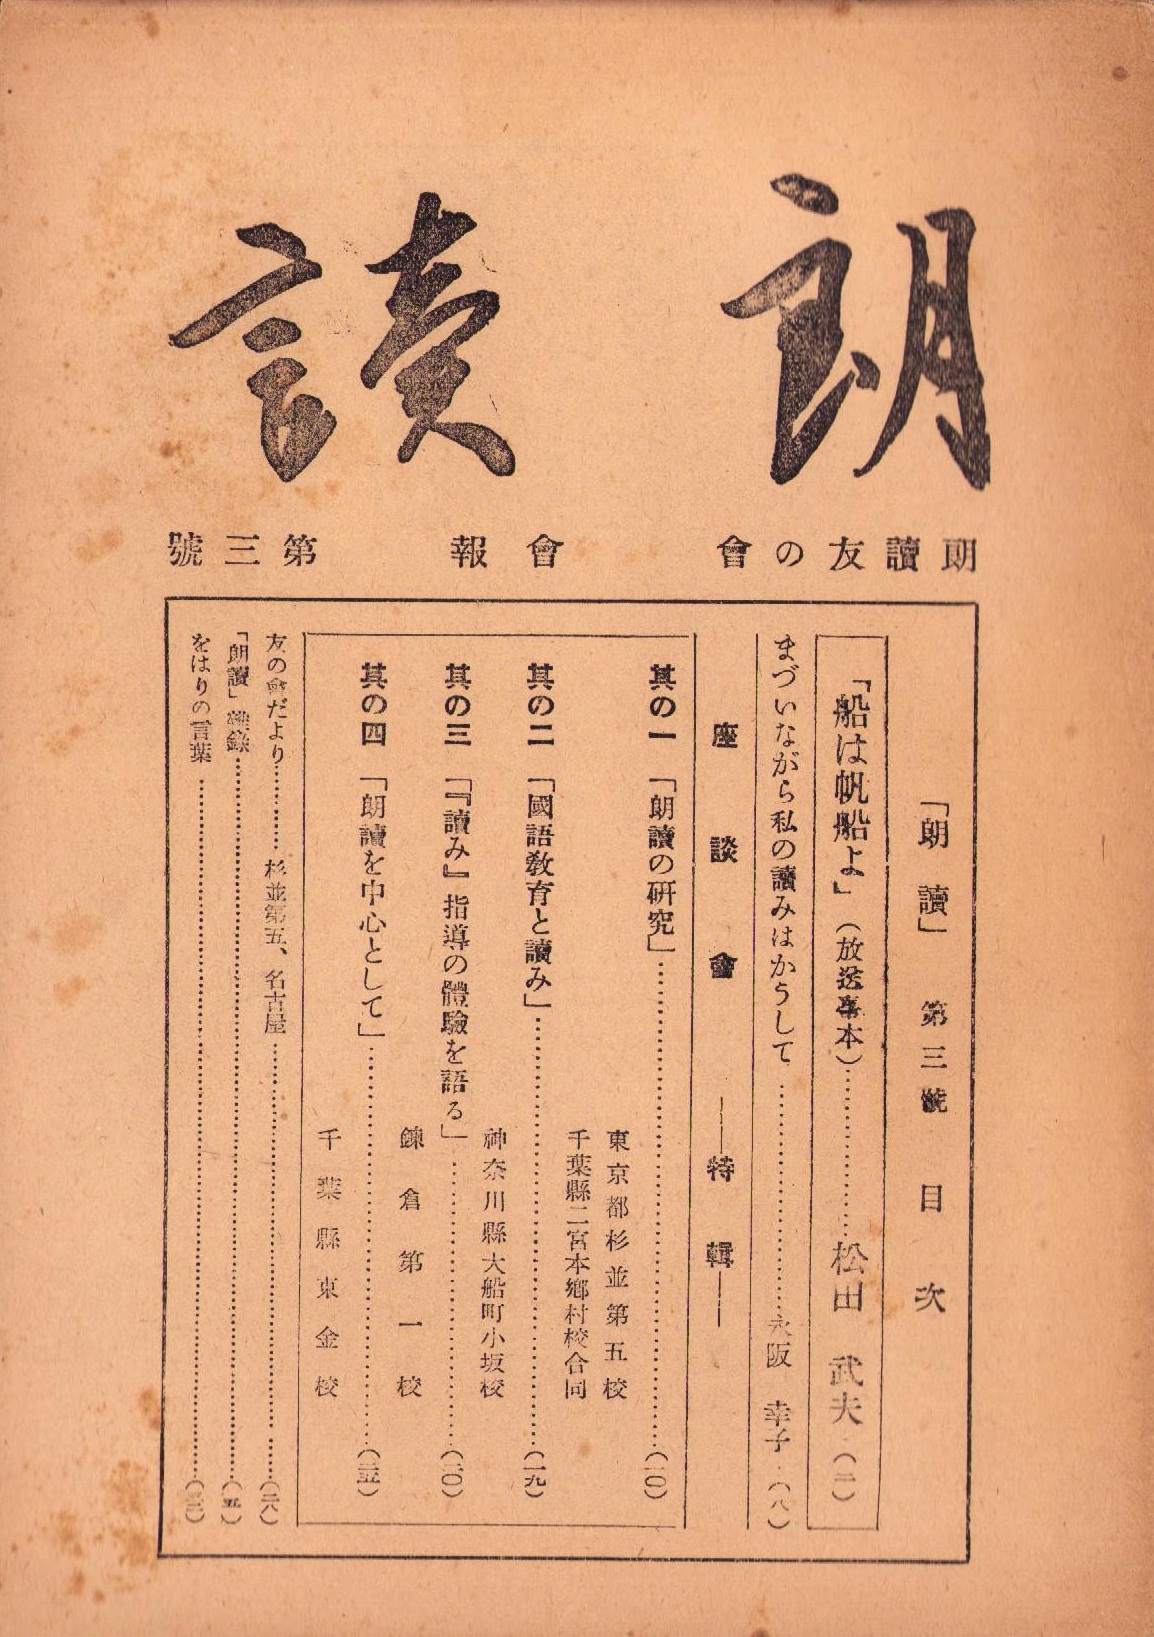 朗讀
朗讀友の會　會報　第三號
「朗讀」　第三號　目次
「船は帆船よ」（放送臺本）…………松田　武夫（二）
まづいながら私の讀みはかうして…………永阪　幸子（八）
座談會　――特輯――
其の一　「朗讀の研究」…………（一〇）
東京都杉並第五校
千葉縣二宮本鄉村校合同
其の二　「國語敎育と讀み」…………（一九）
神奈川縣大船町小坂校
其の三　「『讀み』指導の體驗を語る」…………（二〇）
鎌倉第一校
其の四　「朗讀を中心として」…………（二五）
千葉縣東金校
友の會だより…………杉並第五、名古屋…………（二八）
「朗讀」雜錄…………
をはりの言葉…………（三二）